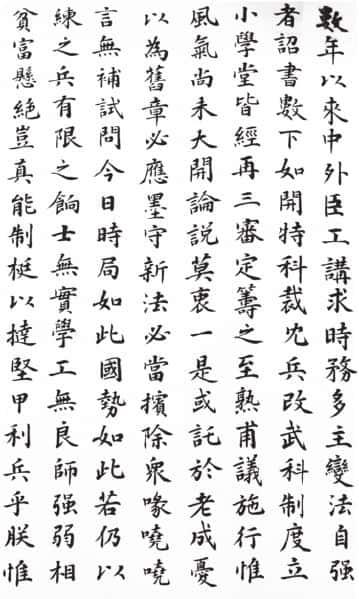 數年以來中外臣工講求時務多主變法自强
者詔書數下如開特科裁冗兵改武科制度立
小學堂皆經再三審定籌之至熟甫議施行惟
風氣尚未大開論說莫衷一是或託於老成憂
以為舊章必應墨守新法必當擯除衆喙嘵嘵
言無補試問今日時局如此國勢如此若仍以
練之兵有限之餉士無實學工無良師强弱相
貧富懸絕豈真能制梃以撻堅甲利兵乎朕惟